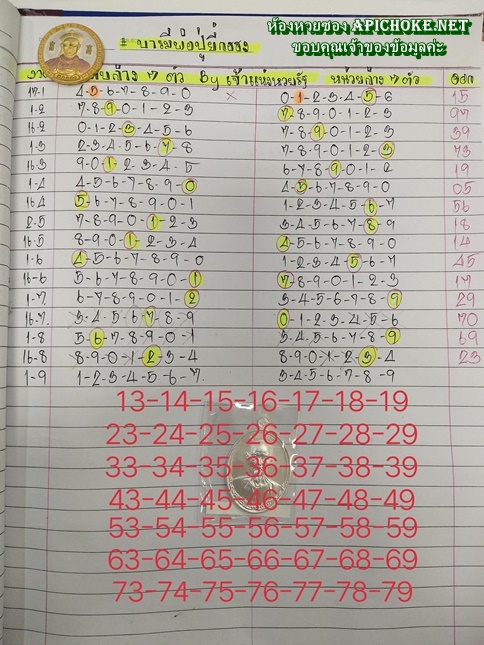 ห้องหวยซอง APICHOKE.NET
ขอบคุณเจ้าของข้อมูลค่ะ
# บารมีพ่อปู่ยี่กอฮง
งวด สิบล่าง → ตัว By เจ้าแห่งหวยรัฐ หน่วยล่าง → ตัว ออก
17-1 4-5-6-7-8-9-0 x 0-1-2-3-4-5-6 15
1-2 7-8-9-0-1-2-3 7-8-9-0-1-2-3 97
16-2 0-1-2-3-4-5-6 7-8-9-0-1-2-3 39
1-3 2-3-4-5-6-7-8 7-8-9-0-1-2-3 73
16-3 9-0-1-2-3-4-5 6-7-8-9-0-1-2 19
1-4 4-5-6-7-8-9-0 4-5-6-7-8-9-0 05
16-4 5-6-7-8-9-0-1 1-2-3-4-5-6-7 56
2-5 7-8-9-0-1-2-3 3-4-5-6-7-8-9 18
16-5 8-9-0-1-2-3-4 4-5-6-7-8-9-0 14
1-6 4-5-6-7-8-9-0 1-2-3-4-5-6-7 45
16-6 5-6-7-8-9-0-1 7-8-9-0-1-2-3 17
1-7 6-7-8-9-0-1-2 3-4-5-6-7-8-9 29
16-7 3-4-5-6-7-8-9 0-1-2-3-4-5-6 70
1-8 5-6-7-8-9-0-1 3-4-5-6-7-8-9 69
16-8 8-9-0-1-2-3-4 8-9-0-1-2-3-4 23
1-9 1-2-3-4-5-6-7 3-4-5-6-7-8-9
13-14-15-16-17-18-19
23-24-25-26-27-28-29
33-34-35-36-37-38-39
43-44-45-46-47-48-49
53-54-55-56-57-58-59
63-64-65-66-67-68-69
73-74-75-76-77-78-79